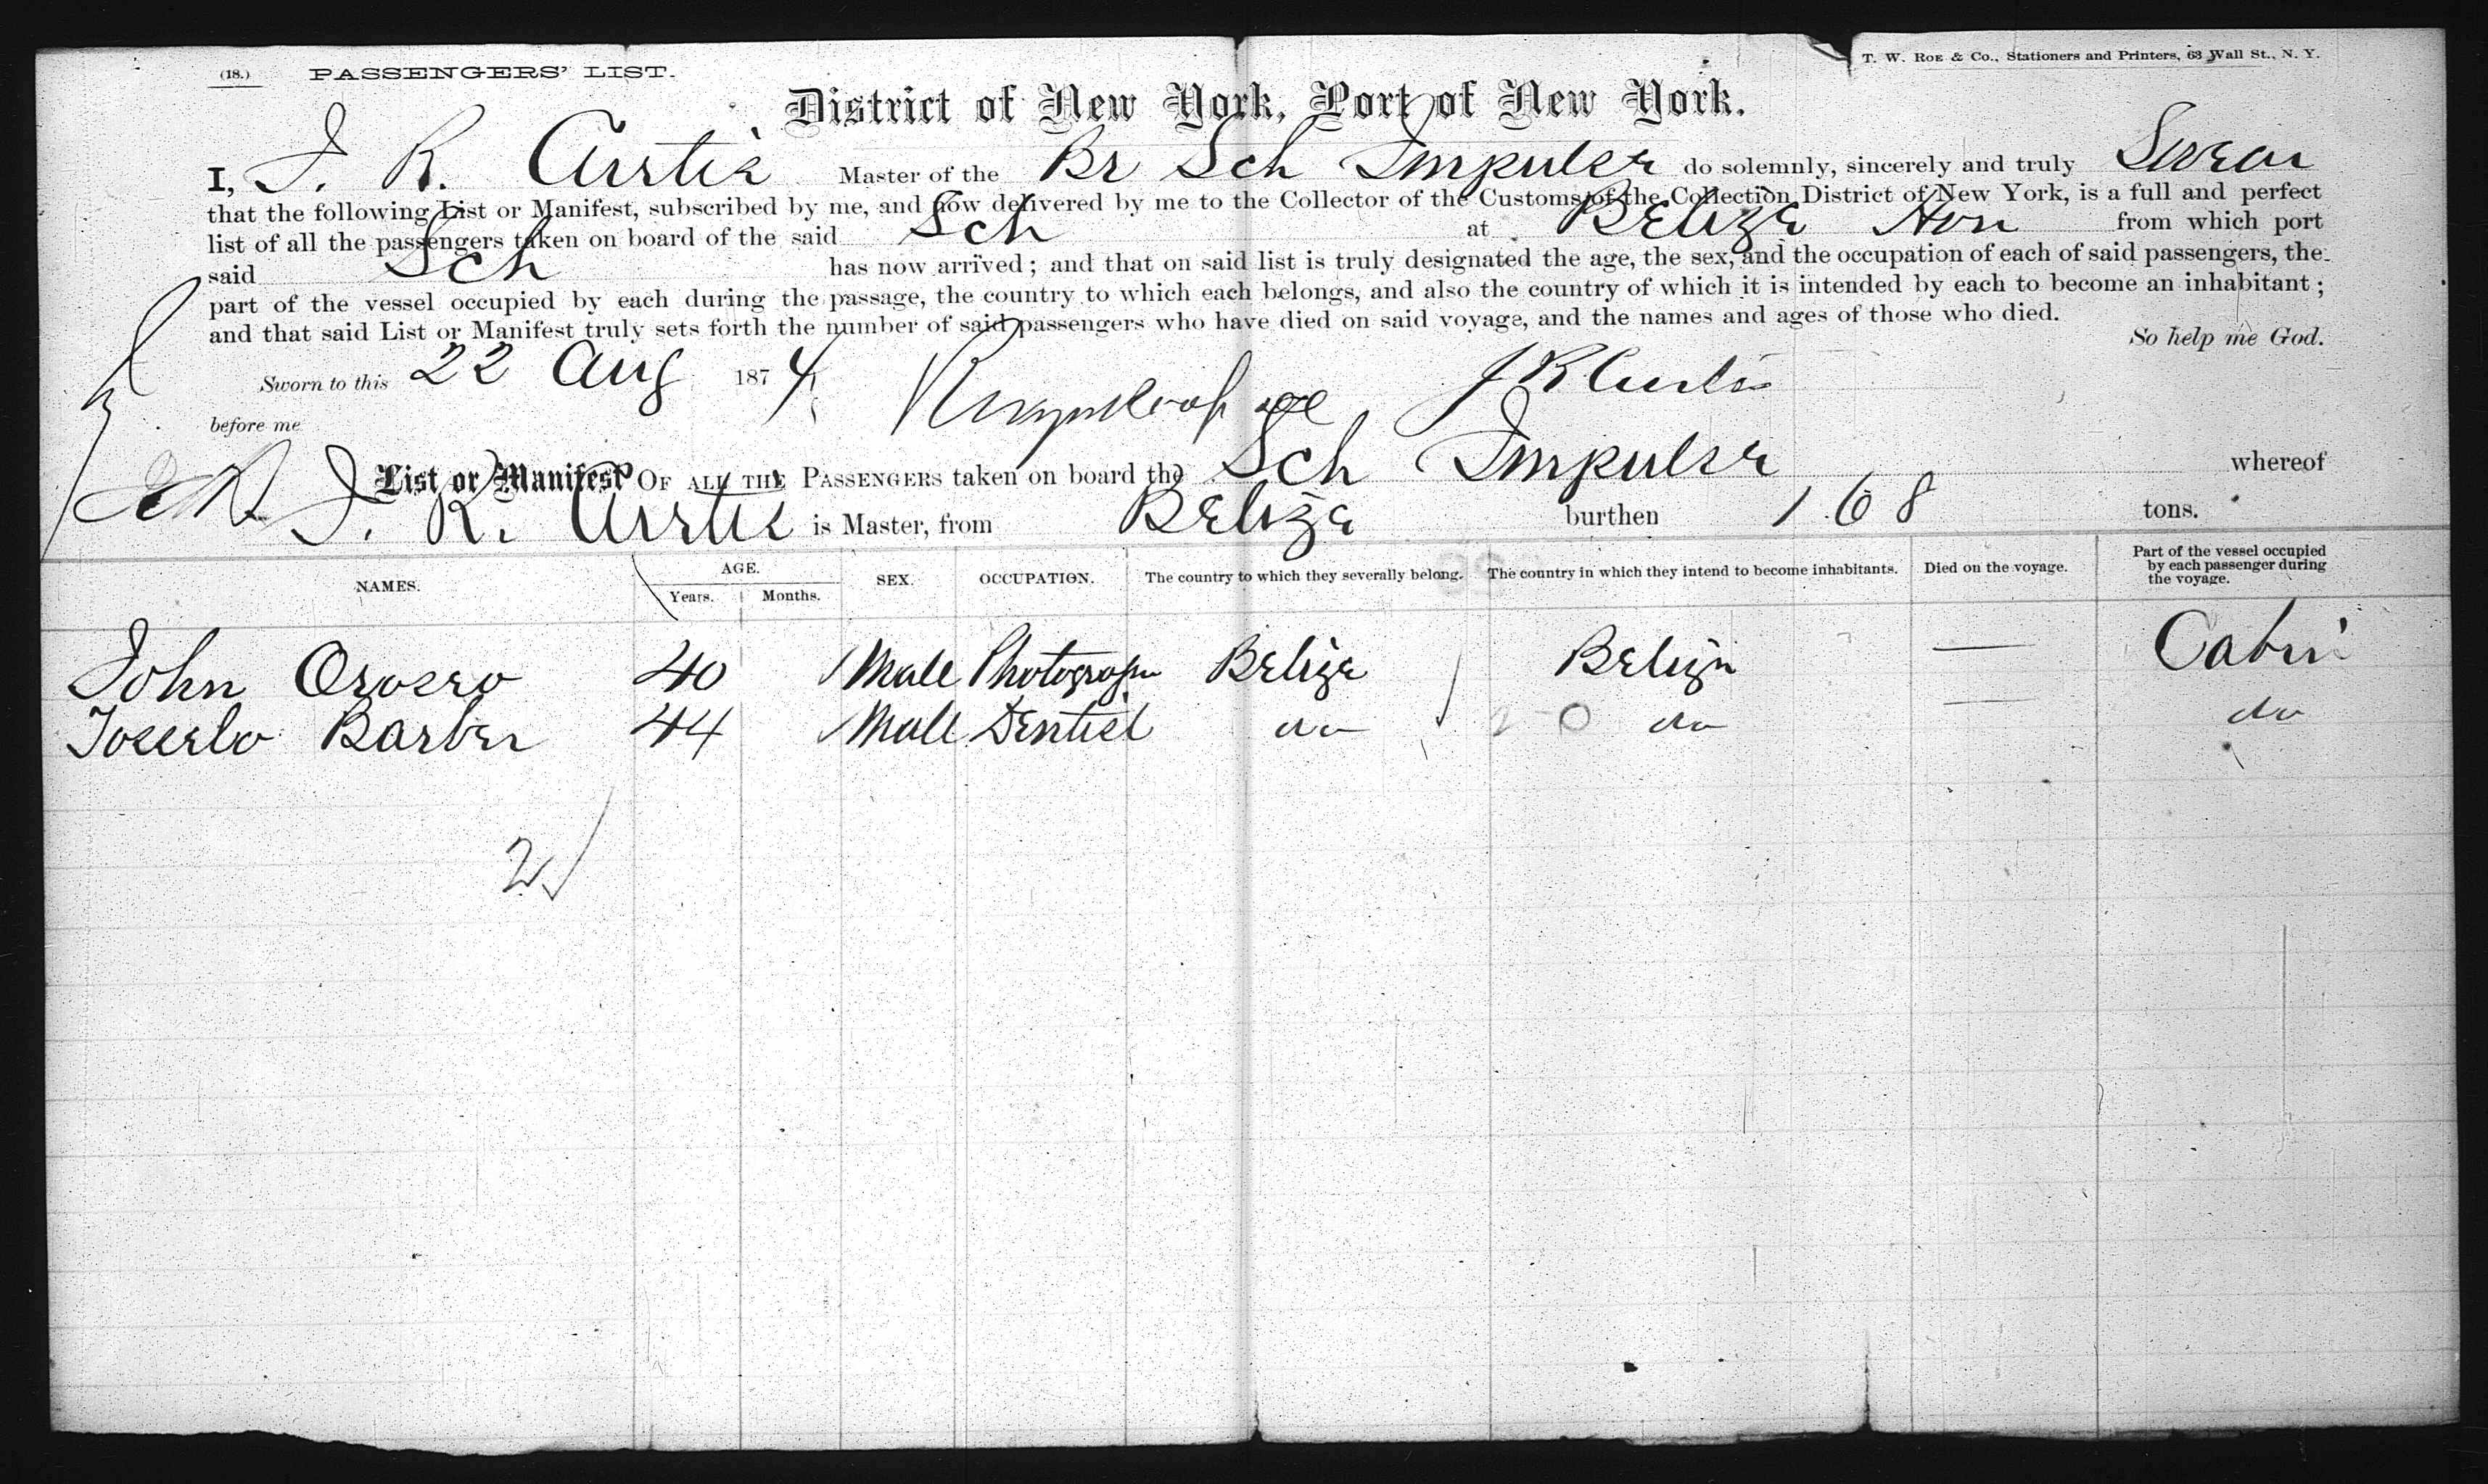 (18.) PASSENGERS' LIST.
T. W. Roe & Co., Stationers and Printers, 63 Wall St., N. Y.
District of New York, Port of New York.
I, J. R. Curtis Master of the Br Sch Impulse do solemnly, sincerely and truly Swear
that the following List or Manifest, subscribed by me, and now delivered by me to the Collector of the Customs of the Collection District of New York, is a full and perfect
list of all the passengers taken on board of the said Sch at Belize Hon from which port
said Sch has now arrived; and that on said list is truly designated the age, the sex, and the occupation of each of said passengers, the
part of the vessel occupied by each during the passage, the country to which each belongs, and also the country of which it is intended by each to become an inhabitant;
and that said List or Manifest truly sets forth the number of said passengers who have died on said voyage, and the names and ages of those who died.
So help me God.
Sworn to this 22 Aug 1874 J R Curtis
before me
List or Manifest OF ALL THE PASSENGERS taken on board the Sch Impulse whereof
J. R. Curtis is Master, from Belize burthen 168 tons.
NAMES. AGE. Years. Months. SEX. OCCUPATION. The country to which they severally belong. The country in which they intend to become inhabitants. Died on the voyage. Part of the vessel occupied by each passenger during the voyage.
John Orosero 40 Male Photograph Belize Belize — Cabin
Barber 44 Male Dentist do do — do
2